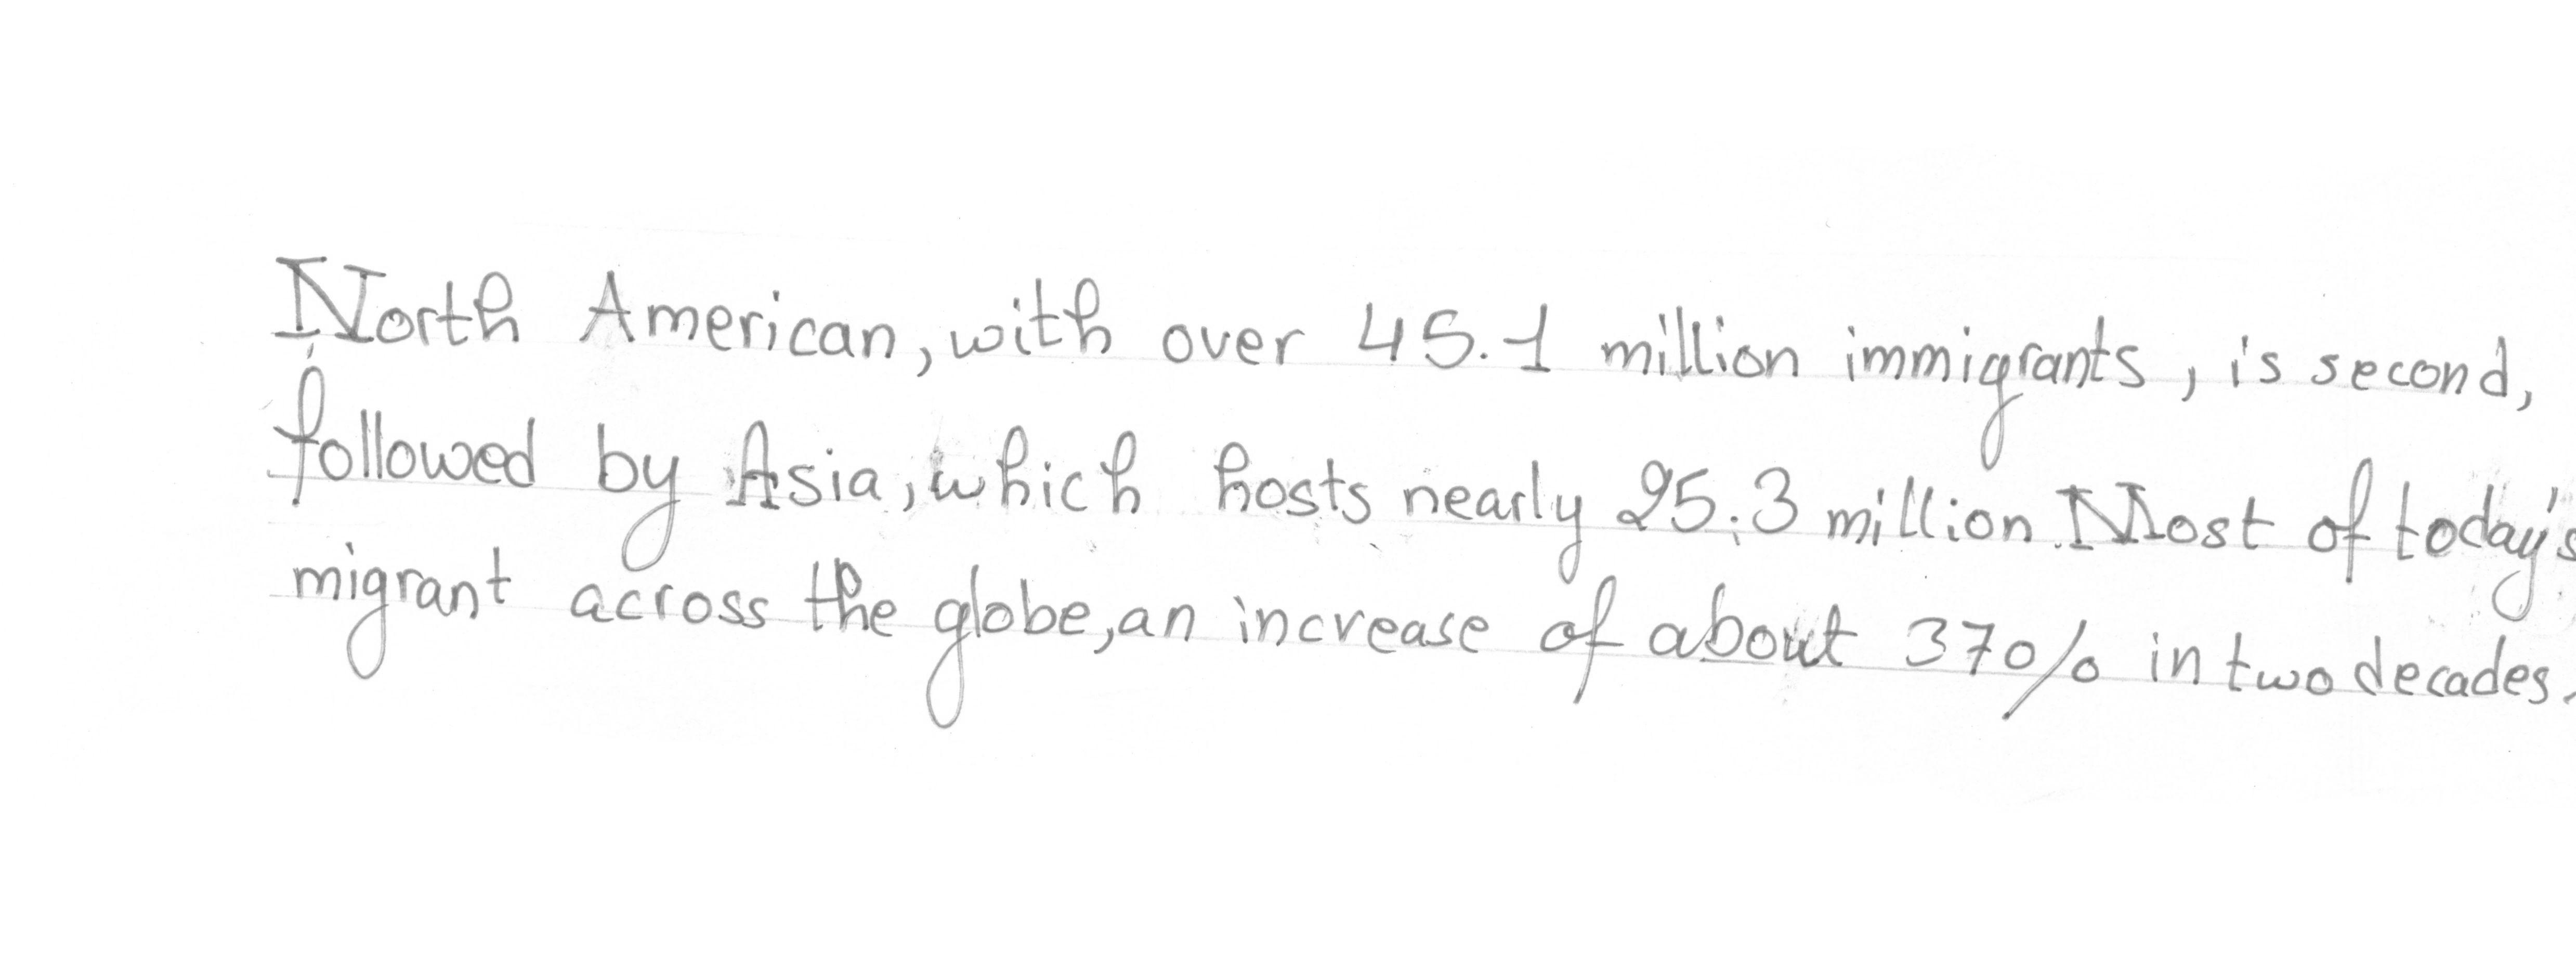 North American, with over 45.1 million immigrants, is second,
followed by Asia, which hosts nearly 25.3 million. Most of today's
migrant across the globe, an increase of about 37% in two decades.